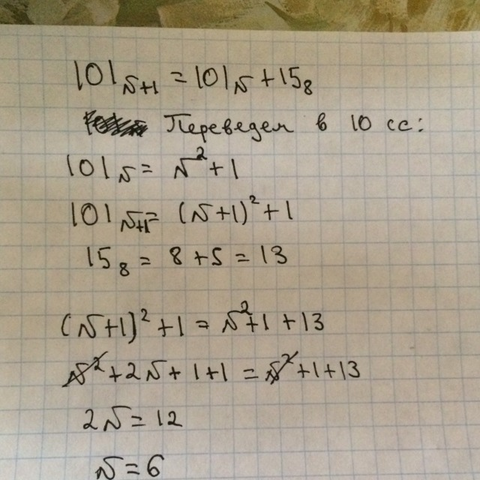 101_{N+1} = 101_N + 15_8
Переведем в 10 сс:
101_N = N² + 1
101_{N+1} = (N+1)² + 1
15_8 = 8 + 5 = 13
(N+1)² + 1 = N² + 1 + 13
N² + 2N + 1 + 1 = N² + 1 + 13
2N = 12
N = 6